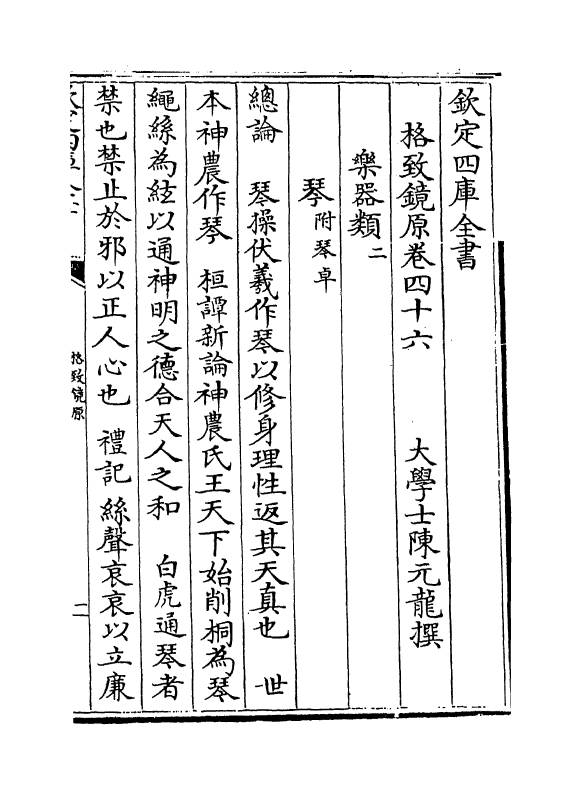 欽定四庫全書
格致鏡原卷四十六 大學士陳元龍撰
樂器類二
琴附琴卓
總論 琴操伏羲作琴以修身理性返其天真也 世
本神農作琴 桓譚新論神農氏王天下始削桐為琴
繩絲為絃以通神明之德合天人之和 白虎通琴者
禁也禁止於邪以正人心也 禮記絲聲哀哀以立廉
格致鏡原